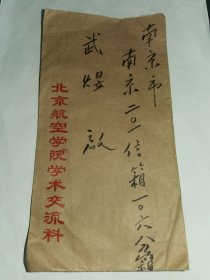 南京市
南京二〇一信箱一〇六八分箱
武煜 啟
北京航空学院学术交流科